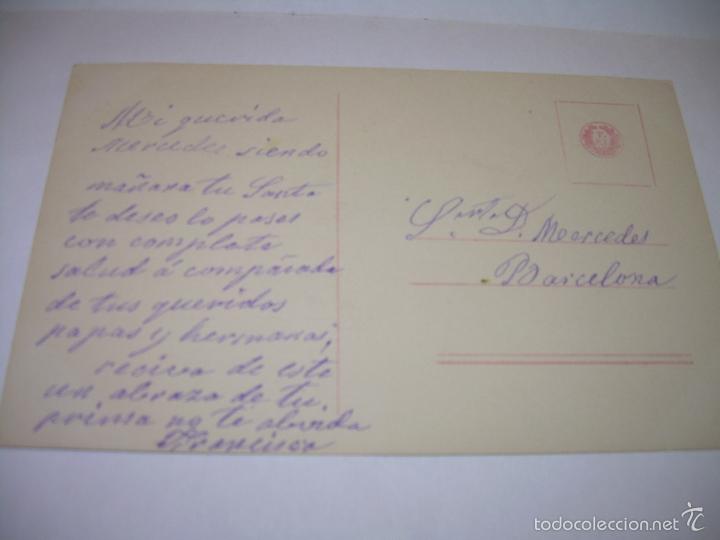 Mi querida
Mercedes siendo
mañana tu Santo
te deseo lo pases
con complata
salud á compañada
de tus queridos
papas y hermanas,
reciva de este
un abraza de tu
primo no te olvida
Francisco
Srta. D. Mercedes
Barcelona
todocoleccion.net